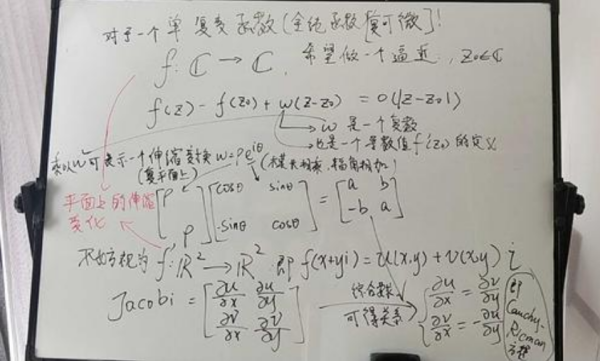 对于一个单复变函数(全纯函数[复可微])!
f: ℂ → ℂ, 希望做一个逼近:, z₀∈ℂ
f(z) - f(z₀) + w(z-z₀) = o(|z-z₀|)
w 是一个复数
也是一个导数值 f'(z₀) 的定义
乘以 w 可表示一个伸缩变换 w = ρe^{iθ}
(复平面上) (模长相乘, 辐角相加)
平面上的伸缩变化
[ρ ρ] [cosθ sinθ -sinθ cosθ] = [a b -b a]
不妨视为 f: ℝ² → ℝ² 即 f(x+yi) = u(x,y) + v(x,y) i
Jacobi = [∂u/∂x ∂u/∂y ∂v/∂x ∂v/∂y]
可得关系
{∂u/∂x = ∂v/∂y
∂v/∂x = -∂u/∂y
即 Cauchy-Rieman 方程